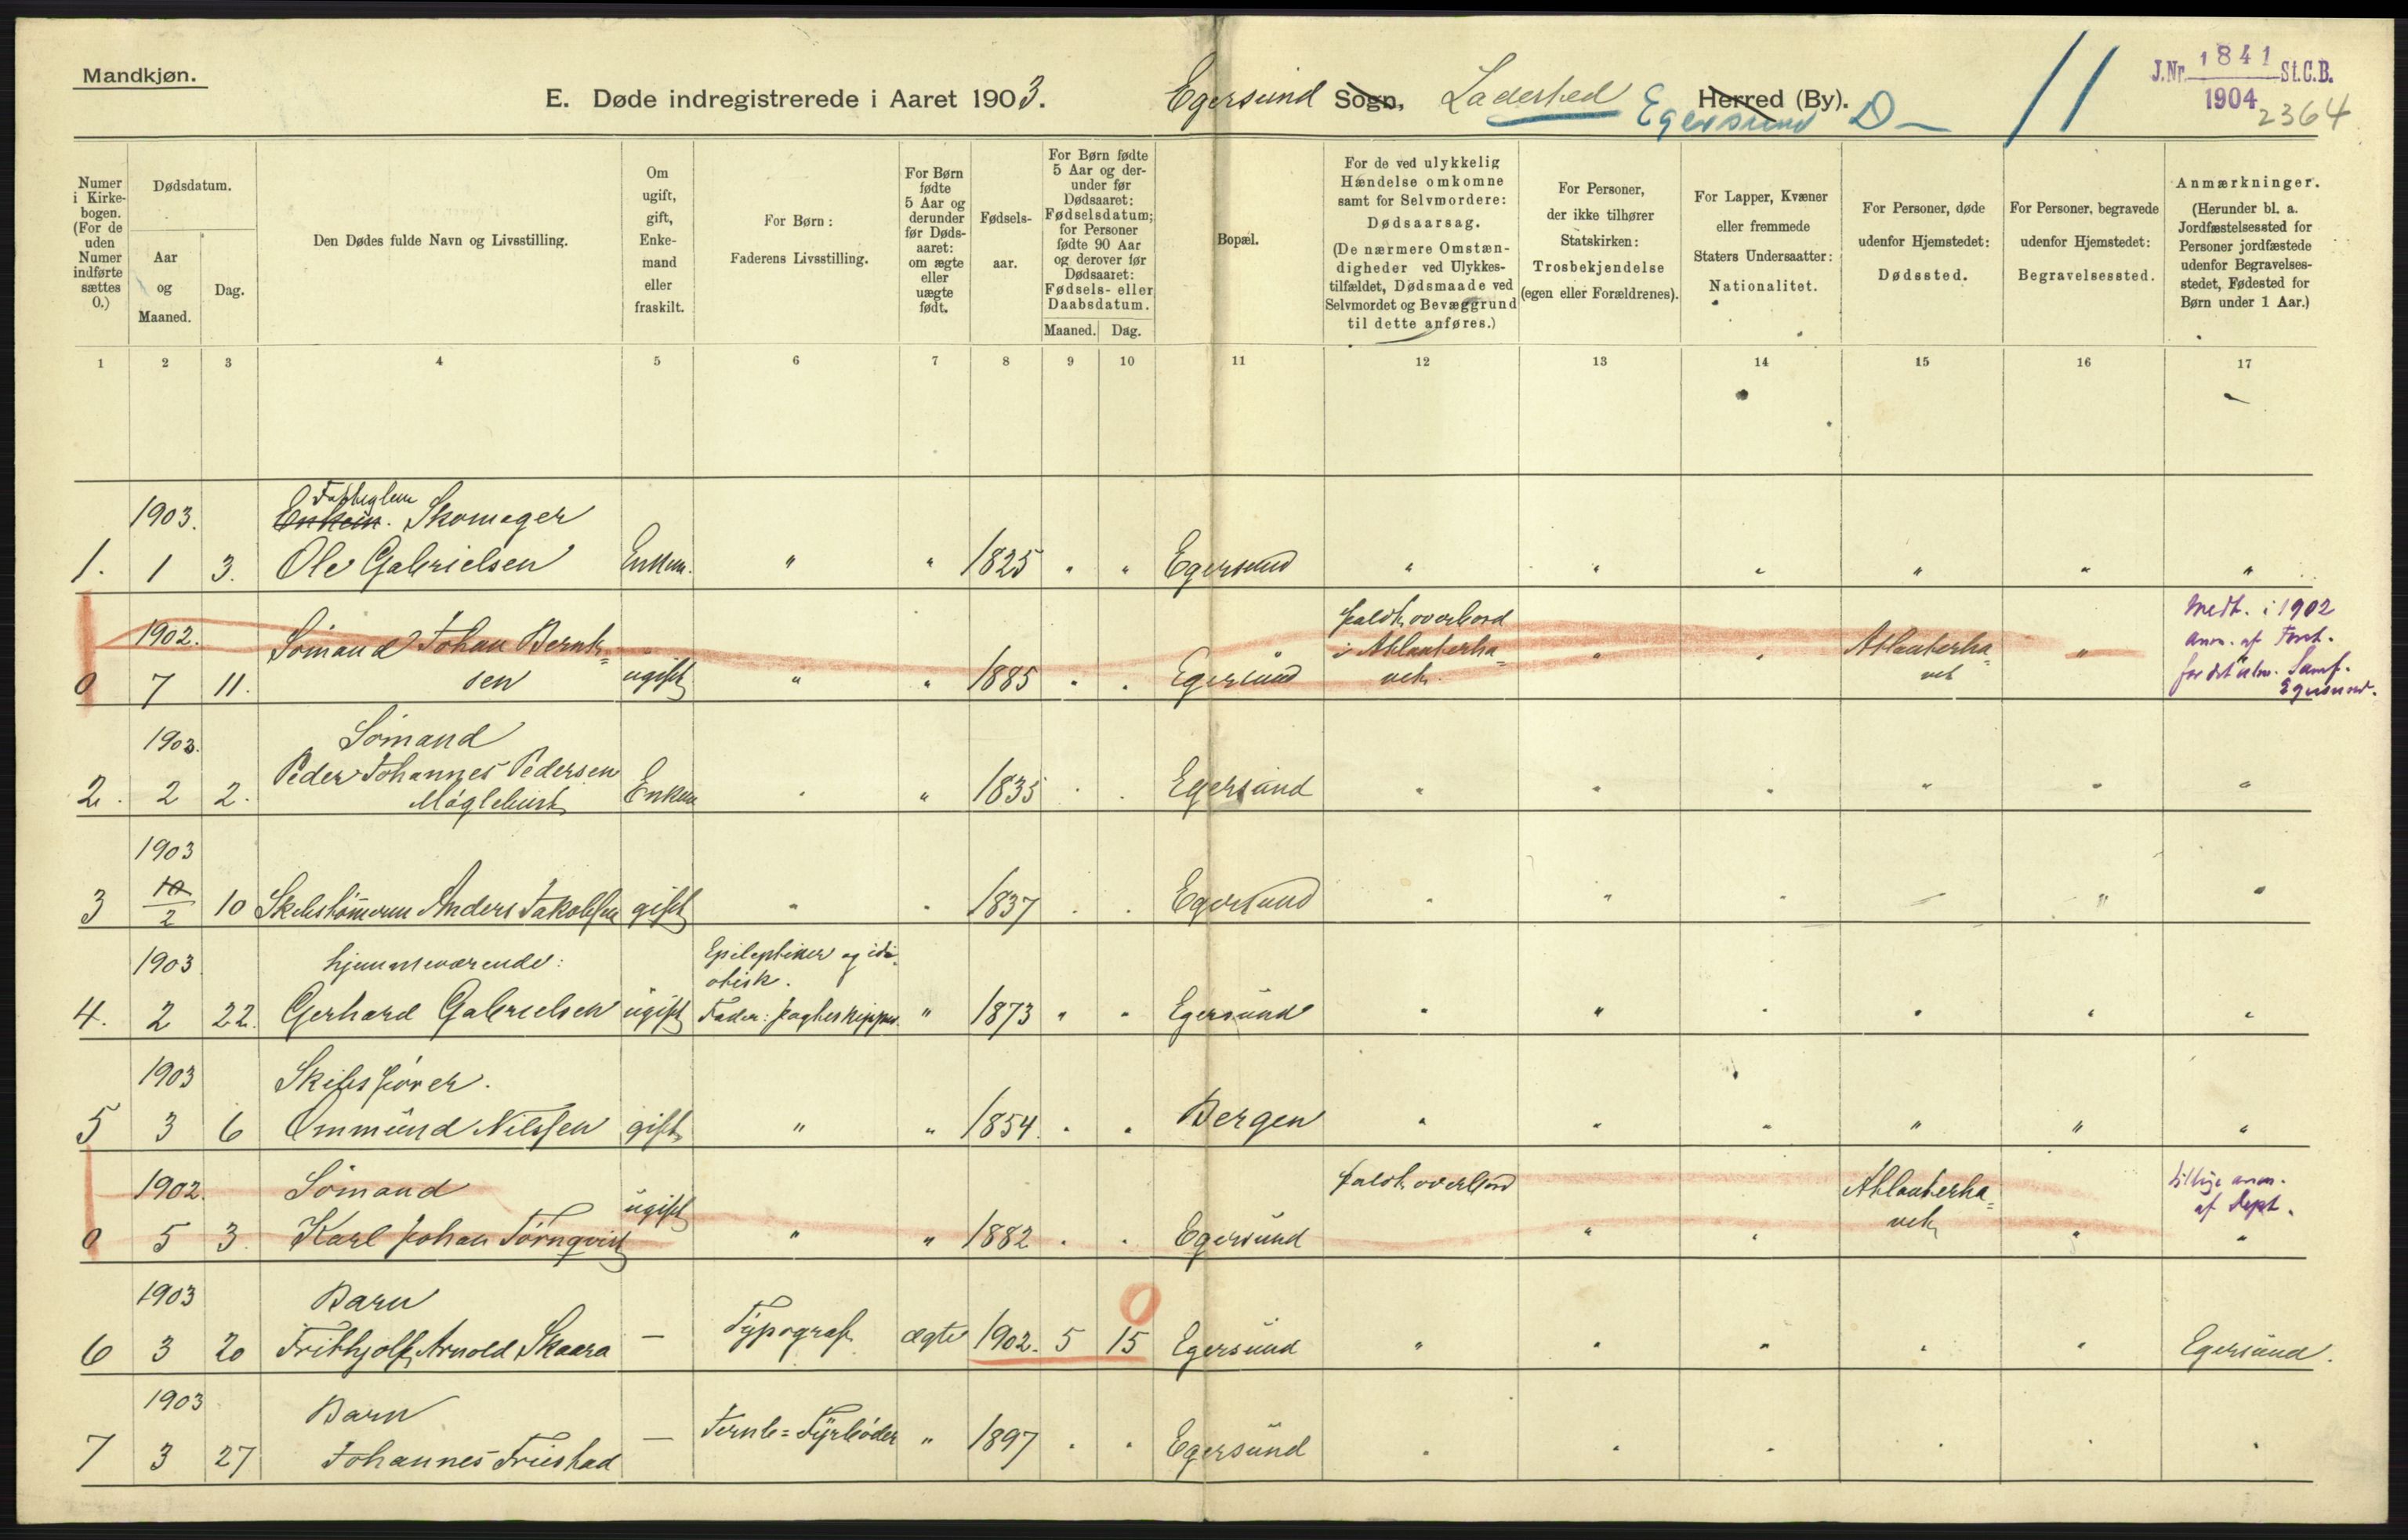 Mandkjøn.
E. Døde indregistrerede i Aaret 1903.
Egersund Sogn, Ladested Herred (By).
Egersund D —
11
J.Nr. 1841 St.C.B.
1904
2364
Numer i Kirkebogen. (For de uden Numer indførte sættes 0.)
Dødsdatum.
Aar og Maaned.
Dag.
Den Dødes fulde Navn og Livsstilling.
Om ugift, gift, Enkemand eller fraskilt.
For Børn: Faderens Livsstilling.
For Børn fødte 5 Aar og derunder før Dødsaaret: om ægte eller uægte født.
Fødselsaar.
For Børn fødte 5 Aar og derunder før Dødsaaret: Fødselsdatum; for Personer fødte 90 Aar og derover før Dødsaaret: Fødsels- eller Daabsdatum.
Maaned. Dag.
Bopæl.
For de ved ulykkelig Hændelse omkomne samt for Selvmordere: Dødsaarsag. (De nærmere Omstændigheder ved Ulykkestilfældet, Dødsmaade ved Selvmordet og Bevæggrund til dette anføres.)
For Personer, der ikke tilhører Statskirken: Trosbekjendelse (egen eller Forældrenes).
For Lapper, Kvæner eller fremmede Staters Undersaatter: Nationalitet.
For Personer, døde udenfor Hjemstedet: Dødssted.
For Personer, begravede udenfor Hjemstedet: Begravelsessted.
Anmærkninger. (Herunder bl. a. Jordfæstelsessted for Personer jordfæstede udenfor Begravelsesstedet, Fødested for Børn under 1 Aar.)
1 2 3 4 5 6 7 8 9 10 11 12 13 14 15 16 17
1903. Enkem. Skomager
1. 1 3. Ole Gabrielsen Enkem. " " 1825 " " Egersund " " " " " "
1902. Sømand Johan Bernt= faldt overbord i Atlanterha= Atlanterha= Medt. i 1902
0 7 11. sen ugift " " 1885 " " Egersund vet. " " vet "
Egersund.
1903. Sømand
Peder Johannes Pedersen
2. 2 2. Enkem " " 1835 " " Egersund " " " " " "
1903
10
3 2 10 Skibstømerm Anders Jakobsen gift " " 1837 " " Egersund " " " " " "
1903 hjemmeværende: Epileptiker og idi-
otisk.
4. 2 22. Gerhard Gabrielsen ugift Fader: " 1873 " " Egersund " " " " " "
1903 Skibsfører.
5 3 6 Ommund Nilssen gift " " 1854. " " Bergen " " " " " "
1902. Sømand faldt overbord Atlanterha= tillige anm.
0 5 3. Karl Johan Törnqvist ugift " " 1882 " " Egersund " " vet " "
1903 Barn
6 3 20 Frithjolf Arnold Skaara — Typograf ægte 1902. 5 15 Egersund " " " " " Egersund.
0
1903 Barn
7 3 27 Johannes Friestad — Jernb= Fyrbøder " 1897 " " Egersund " " " " " "